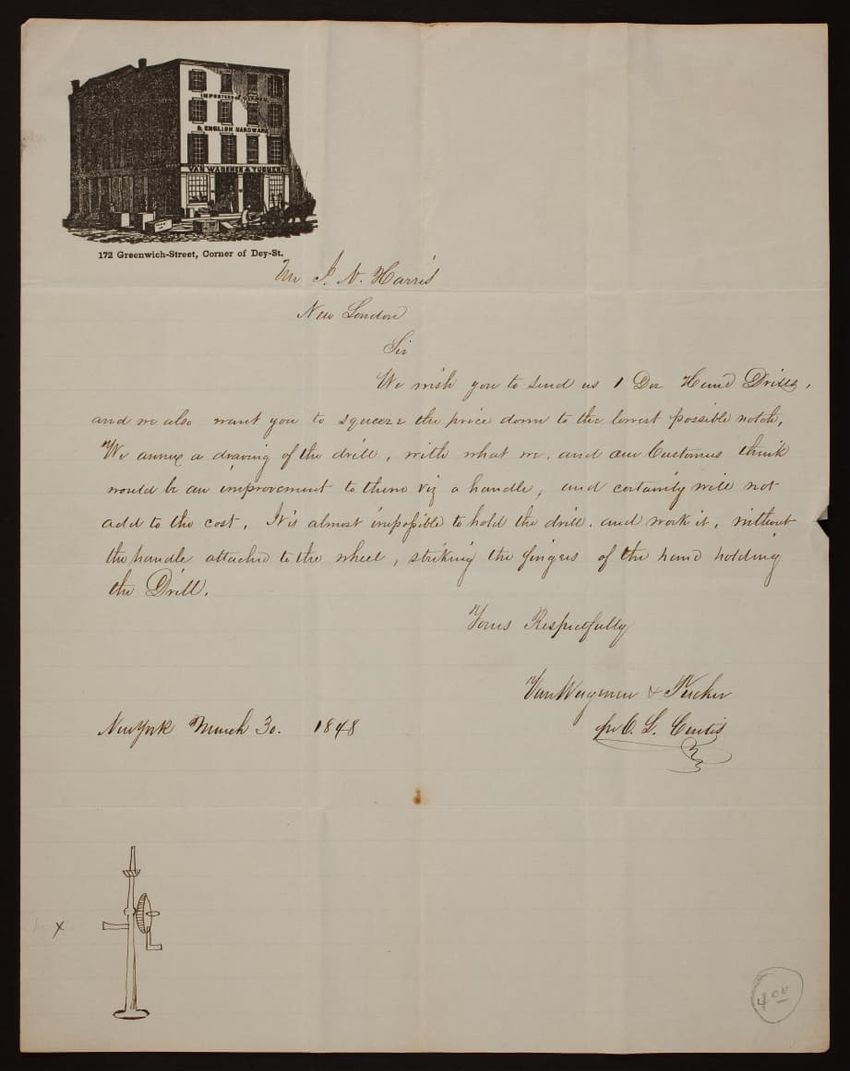 IMPORTERS OF GERMAN
& ENGLISH HARDWARE
VAN WAGENEN & TUCKER
172 Greenwich-Street, Corner of Dey-St.
Mr J. N. Harris
New London
Sir
We wish you to send us 1 Doz Hand Drills,
and we also want you to squeeze the price down to the lowest possible notch,
We annex a drawing of the drill, with what we, and our Customers think
would be an improvement to them viz a handle, and certainly will not
add to the cost. It is almost impossible to hold the drill, and work it, without
the handle attached to the wheel, striking the fingers of the hand holding
the Drill.
Yours Respectfully
Van Wagenen & Tucker
pr C. L. Curtis
New York March 30. 1848
x
4 00